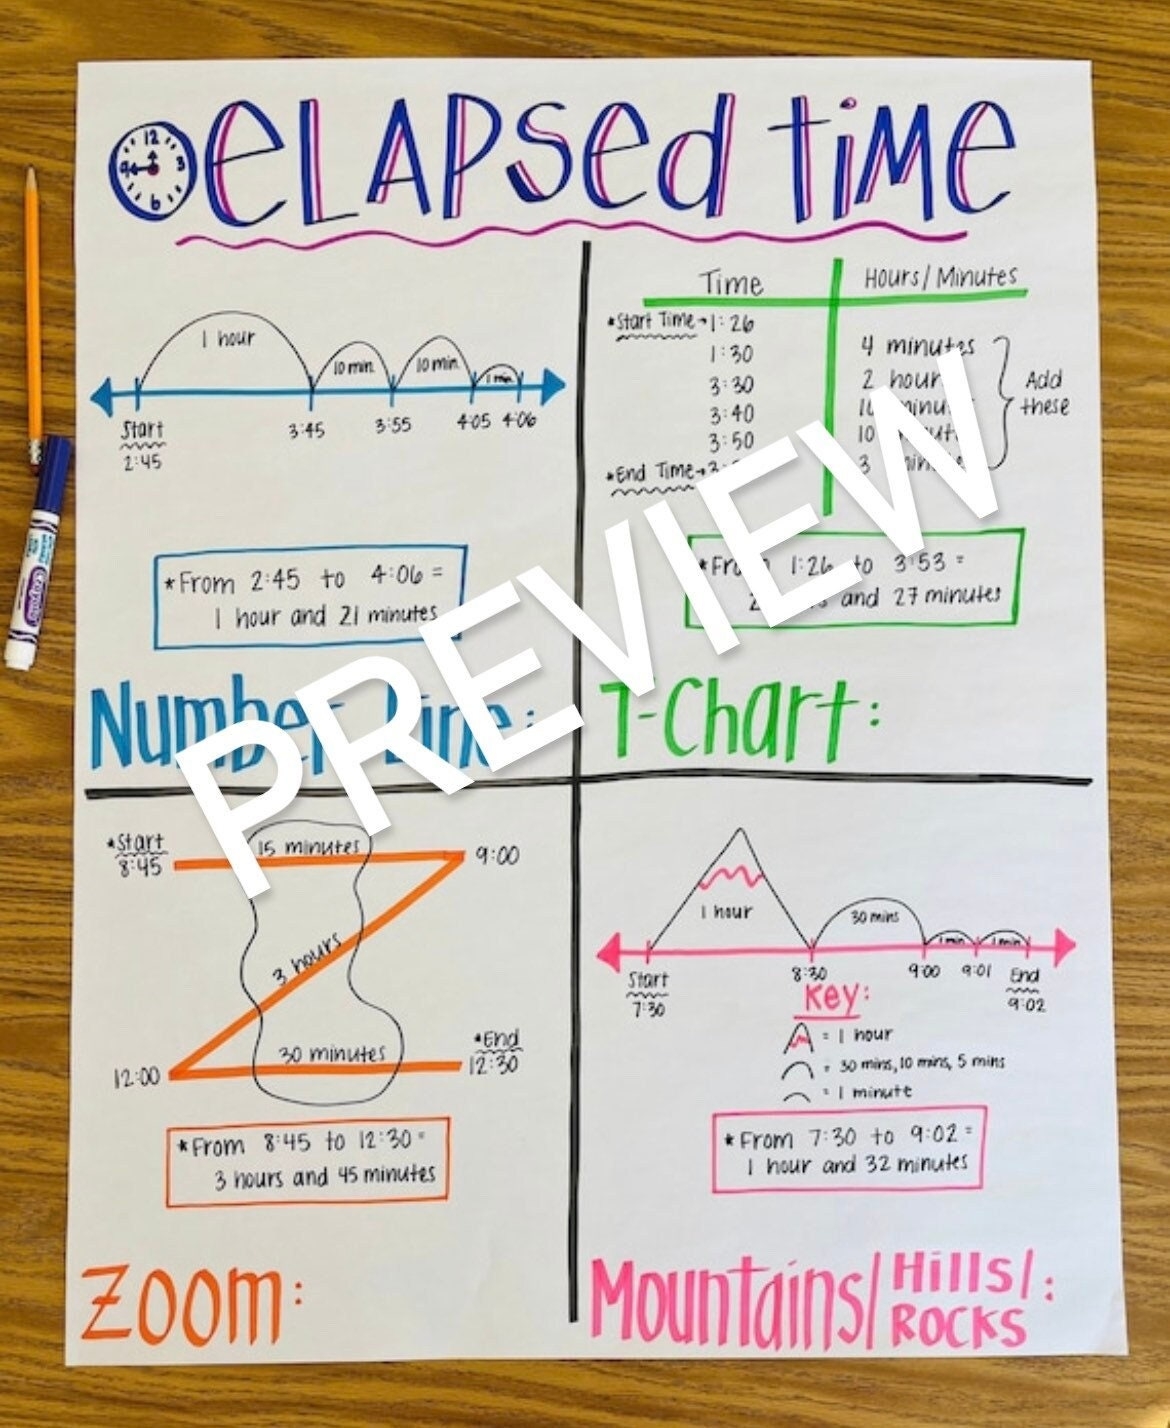 12
9 3
6
eLAPSed tiMe
1 hour
10 min.
10 min.
1 min.
Start
2:45
3:45
3:55
4:05
4:06
*From 2:45 to 4:06 =
1 hour and 21 minutes
Number Line:
Time
Hours/Minutes
*Start Time→1:26
1:30
3:30
3:40
3:50
*End Time→3:
4 minutes
2 hour
10 minut
10 minut
3 min
Add
these
*From 1:26 to 3:53 =
2 and 27 minutes
T-Chart:
PREVIEW
*Start
8:45
15 minutes
9:00
3 hours
12:00
30 minutes
*End
12:30
*From 8:45 to 12:30=
3 hours and 45 minutes
Zoom:
1 hour
30 mins
1 min
1 min
Start
7:30
8:30
9:00
9:01
End
9:02
Key:
= 1 hour
= 30 mins, 10 mins, 5 mins
= 1 minute
*From 7:30 to 9:02=
1 hour and 32 minutes
Mountains/Hills/:
ROCKS
Crayola